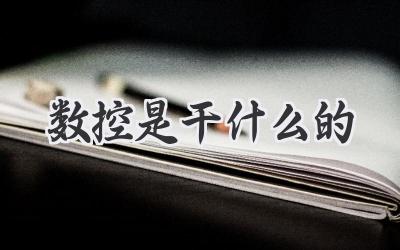 数控是干什么的